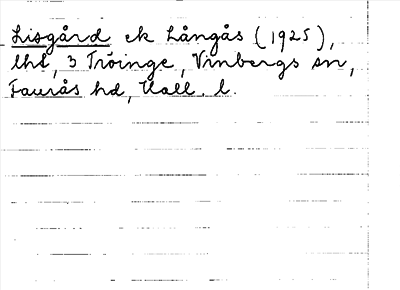 Lisgård ek Långås (1925),
lht, 3 Tröinge, Vinbergs sn,
Faurås hd, Hall. l.